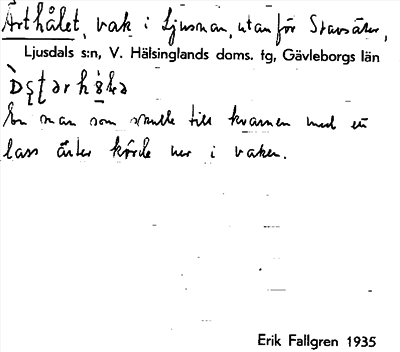 Ärthålet, vak i Ljusnan, utanför Stavsäter,
Ljusdals s:n, V. Hälsinglands doms. fg, Gävleborgs län
En man som skulle till kvarnen med ett
lass ärter körde ner i vaken.
Erik Fallgren 1935